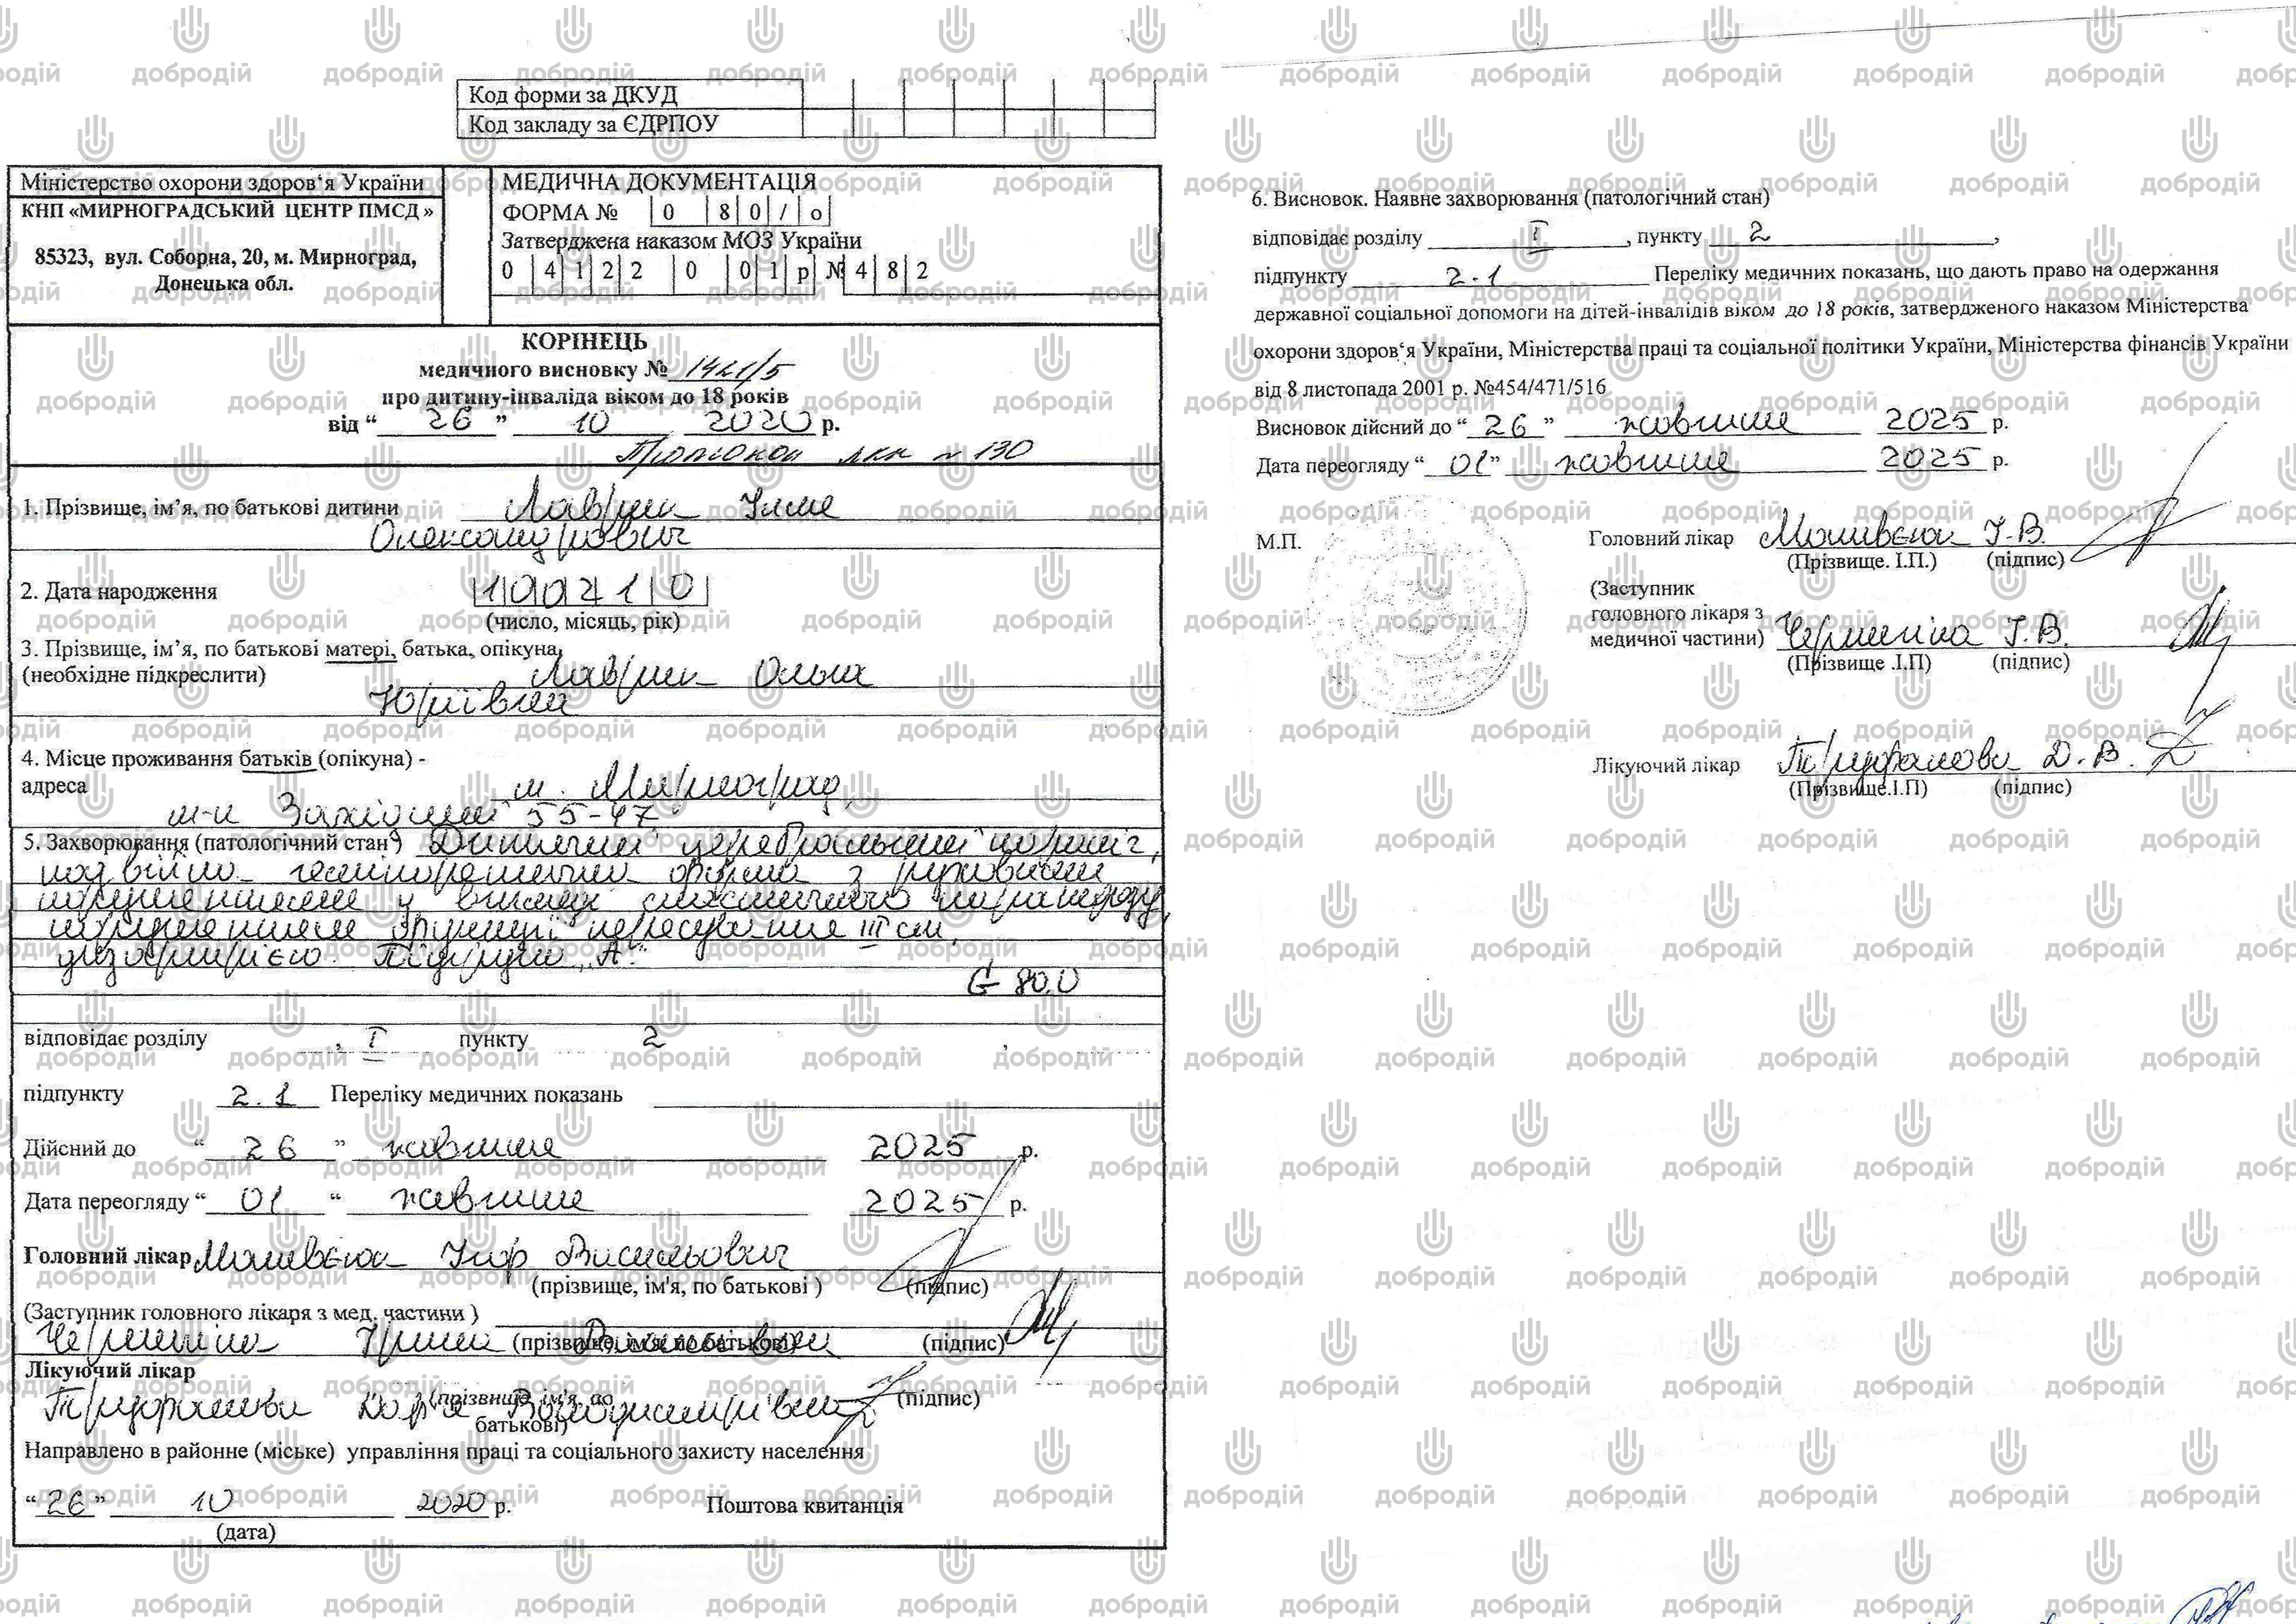 Код форми за ДКУД
Код закладу за ЄДРПОУ
Міністерство охорони здоров‘я України
КНП «МИРНОГРАДСЬКИЙ ЦЕНТР ПМСД »
85323, вул. Соборна, 20, м. Мирноград,
Донецька обл.
МЕДИЧНА ДОКУМЕНТАЦІЯ
ФОРМА № 0 8 0 / о
Затверджена наказом МОЗ України
0 4 1 2 2 0 0 1 р № 4 8 2
КОРІНЕЦЬ
медичного висновку № 1421/5
про дитину-інваліда віком до 18 років
від “ 26 ” 10 2020 р.
Протокол лкк № 130
1. Прізвище, ім’я, по батькові дитини Лаврик Ілля
Олександрович
2. Дата народження 1 0 0 2 1 0
(число, місяць, рік)
3. Прізвище, ім’я, по батькові матері, батька, опікуна,
(необхідне підкреслити) Лаврик Ольга
Юріївна
4. Місце проживання батьків (опікуна) -
адреса м. Мирноград,
м-н Західний 55-47
5. Захворювання (патологічний стан ) Дитячий церебральний параліч,
подвійна геміпаретична форма з руховими
порушеннями у вигляді спастичного тетрапарезу,
порушенням функції пересування III ст,
дизартрією. Підгрупа „А.“
G 80.0
відповідає розділу I пункту 2 ,
підпункту 2.1 Переліку медичних показань
Дійсний до “ 26 ” жовтня 2025 р.
Дата переогляду “ 01 “ жовтня 2025 р.
Головний лікар Ігор Васильович
(прізвище, ім'я, по батькові ) (підпис)
(Заступник головного лікаря з мед. частини )
Ірина (прізвище, ім'я, по батькові) (підпис)
Лікуючий лікар
(прізвище, ім'я, по
Труфанова Дар'я Володимирівна (підпис)
батькові)
Направлено в районне (міське) управління праці та соціального захисту населення
“ 26 ” 10 2020 р. Поштова квитанція
(дата)
6. Висновок. Наявне захворювання (патологічний стан)
відповідає розділу I , пункту 2 ,
підпункту 2.1 Переліку медичних показань, що дають право на одержання
державної соціальної допомоги на дітей-інвалідів віком до 18 років, затвердженого наказом Міністерства
охорони здоров‘я України, Міністерства праці та соціальної політики України, Міністерства фінансів України
від 8 листопада 2001 р. №454/471/516
Висновок дійсний до “ 26 ” жовтня 2025 р.
Дата переогляду “ 01” жовтня 2025 р.
М.П.
Головний лікар І.В.
(Прізвище. І.П.) (підпис)
(Заступник
головного лікаря з
медичної частини) І.В.
(Прізвище .І.П) (підпис)
Лікуючий лікар Труфанова Д.В.
(Прізвище.І.П) (підпис)
добродій